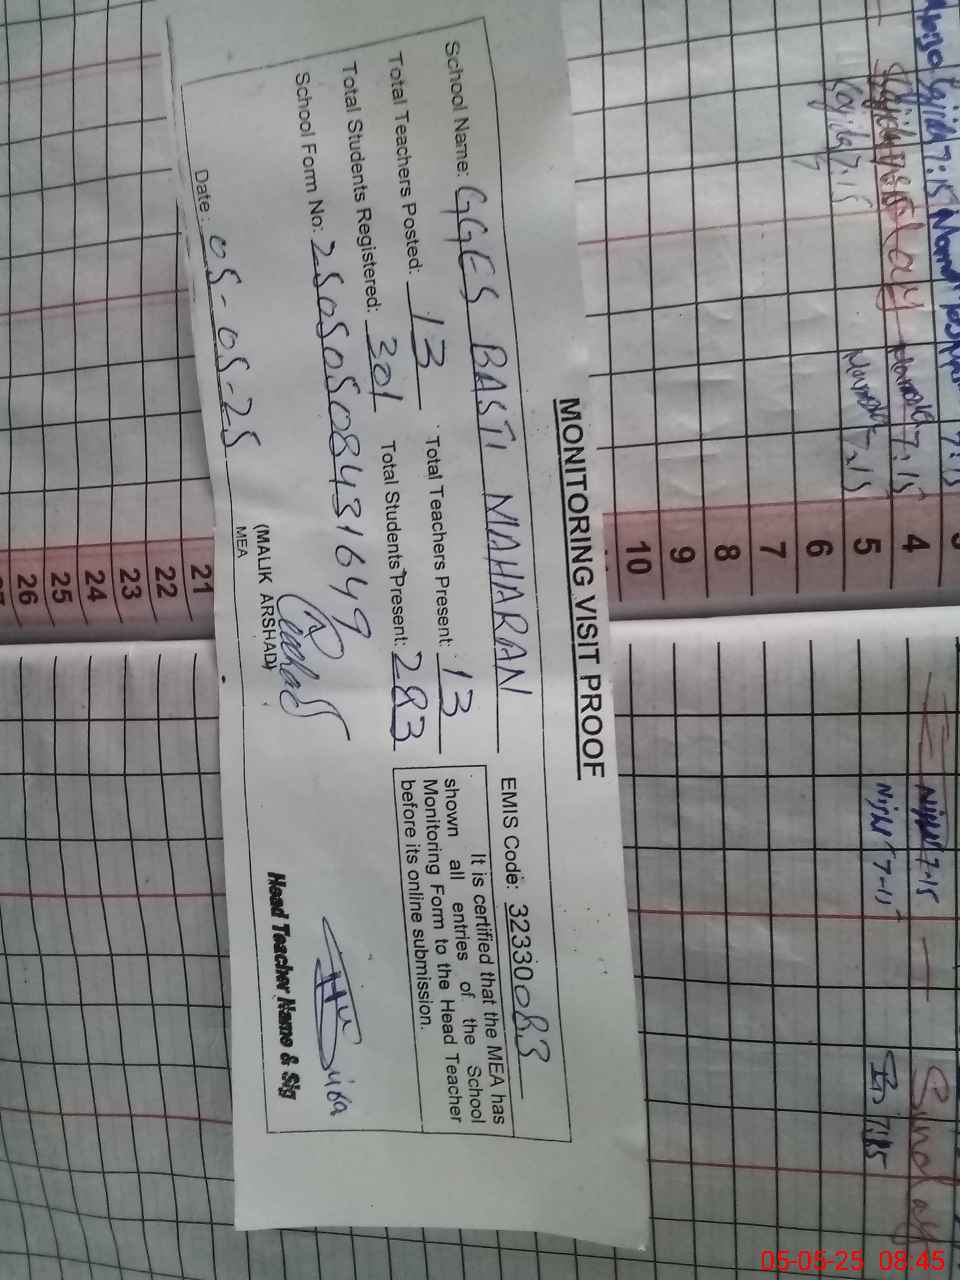 MONITORING VISIT PROOF
School Name: GGES BASTI MAHARAN EMIS Code: 32330083
Total Teachers Posted: 13 Total Teachers Present: 13
Total Students Registered: 301 Total Students Present: 283
School Form No: 2505050843 1649
It is certified that the MEA has
shown all entries of the School
Monitoring Form to the Head Teacher
before its online submission.
Date: 05-05-25
(MALIK ARSHAD)
MEA
Head Teacher Name & Sig
4
5
6
7
8
9
10
21
22
23
24
25
26
7:15
7:15
05-05-25 08:45